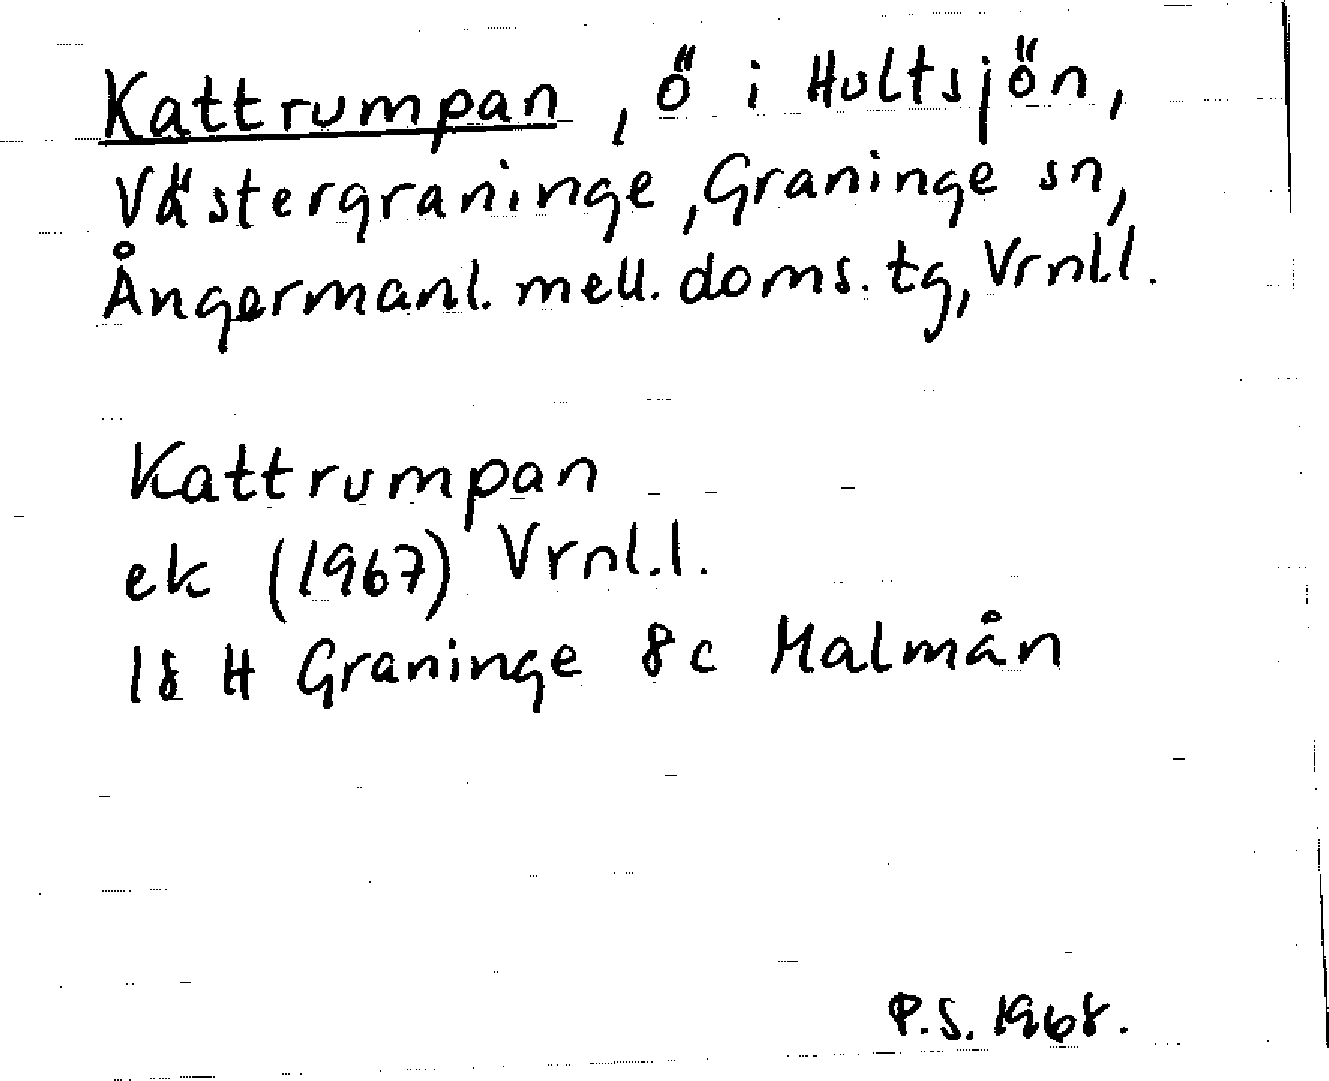 Kattrumpan, ö i Hultsjön,
Västergraninge, Graninge sn,
Ångermanl. mell. doms. tg, Vrnl.l.
Kattrumpan
ek (1967) Vrnl.l.
18 H Graninge 8c Malmån
P.S. 1968.